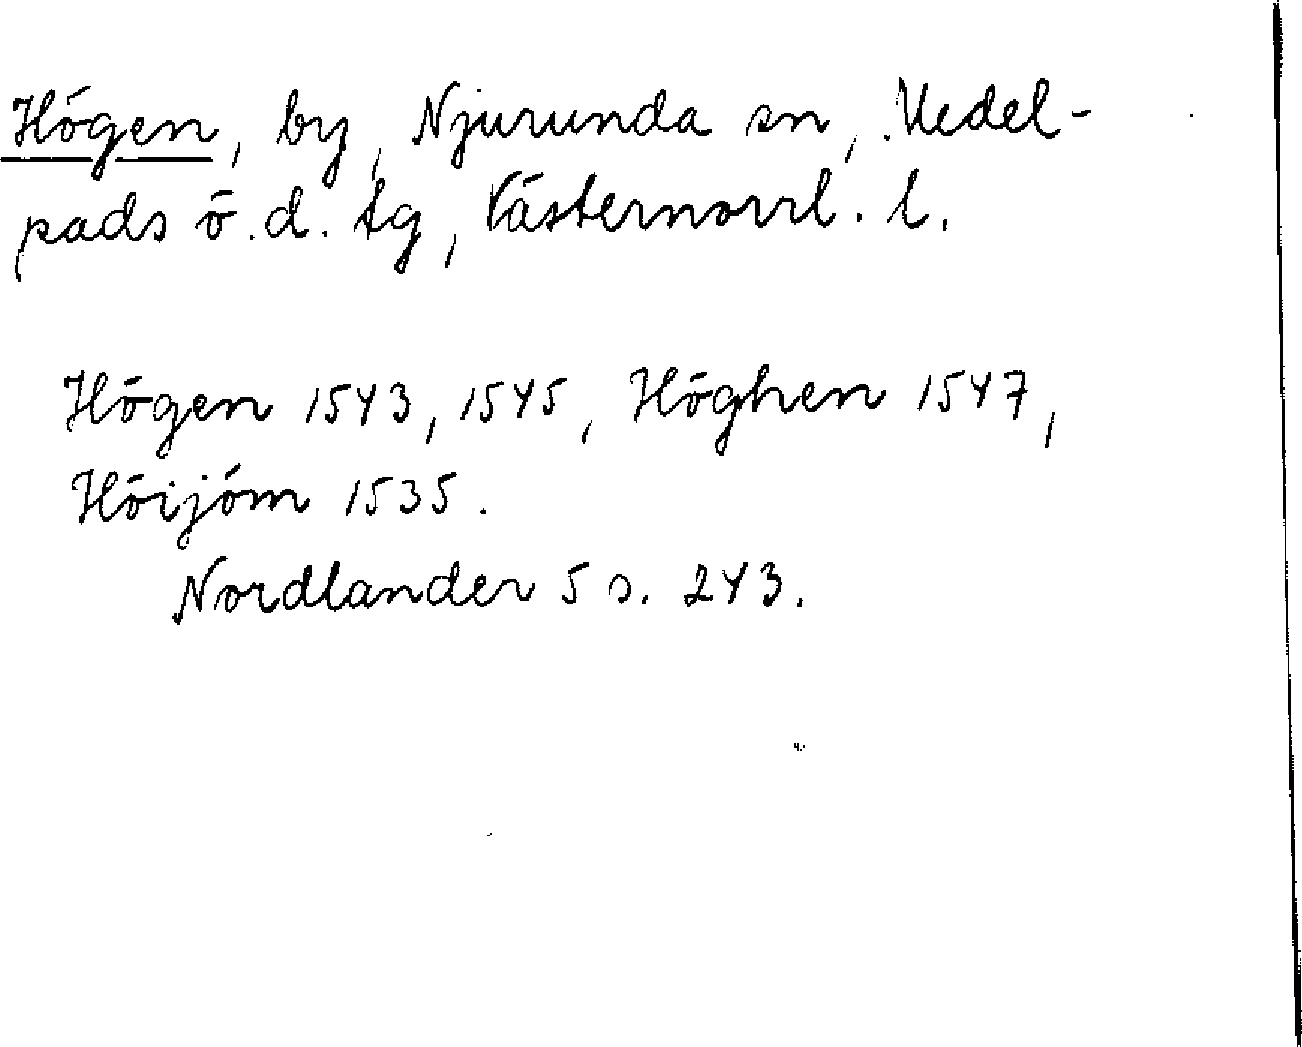 Högen, by, Njurunda sn, Medel-
pads ö.d. tg, Västernorrl. l.
Högen 1543, 1545, Höghen 1547,
Höijöm 1535.
Nordlander 5 s. 243.